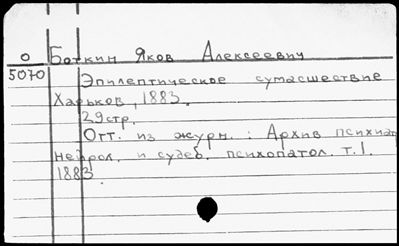 О Боткин Яков Алексеевич
5070 Эпилептическое сумасшествие
Харьков, 1883.
29стр.
Отт. из журн. : Архив психиат
нейрол. и судеб. психопатол. т.1.
1883.